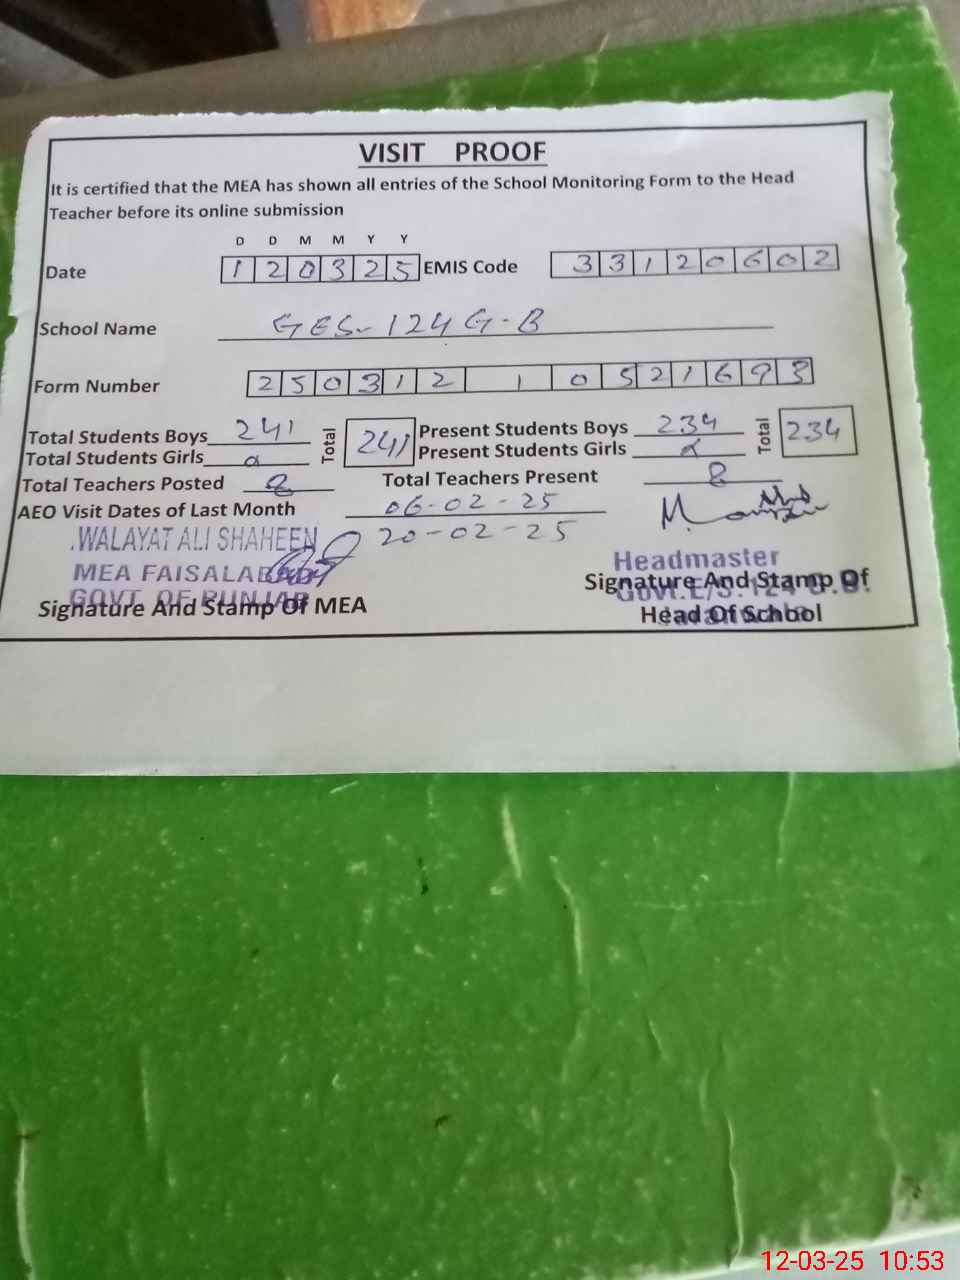 VISIT PROOF
It is certified that the MEA has shown all entries of the School Monitoring Form to the Head
Teacher before its online submission
D D M M Y Y
Date 120325 EMIS Code 33120602
School Name GES-124 G-B
Form Number 250312 1 0521693
Total Students Boys 241 Total 241 Present Students Boys 234 Total 234
Total Students Girls Present Students Girls
Total Teachers Posted 8 Total Teachers Present 8
AEO Visit Dates of Last Month 06-02-25
20-02-25
WALAYAT ALI SHAHEEN
MEA FAISALABAD
GOVT. OF PUNJAB
Signature And Stamp Of MEA
Headmaster
Govt. E/S. 124 G.B.
Signature And Stamp Of
Head Of School
12-03-25 10:53